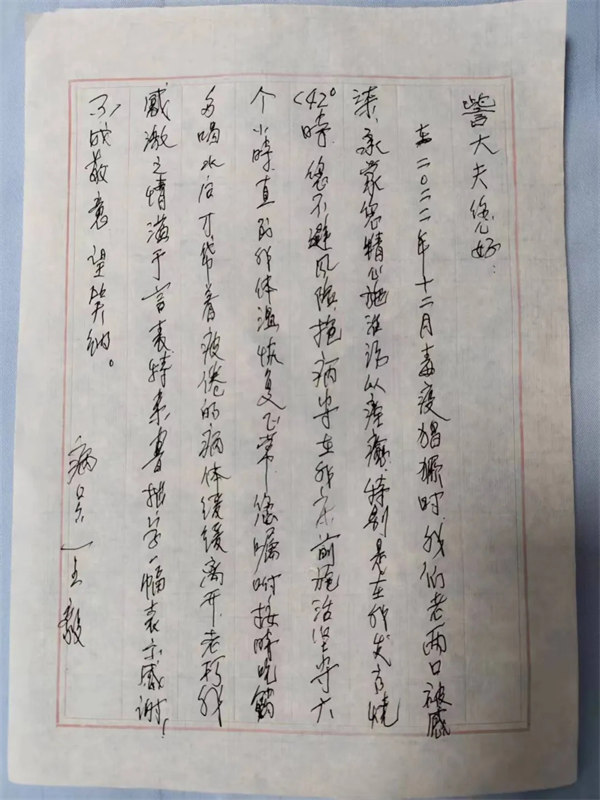 訾大夫您好：
在二〇二二年十二月毒疫猖獗时我们老两口被感
染，承蒙您精心施治得以痊癒，特别是在我发高烧
（42°时，您不避风险抱病守在我床前施治坚守六
个小时直到我体温恢复正常，您嘱咐按时吃药
多喝水后才带着疲倦的病体缓缓离开，老朽我
感激之情溢于言表特来书拙字一幅表示感谢！
不成敬意望笑纳。
病员 王毅